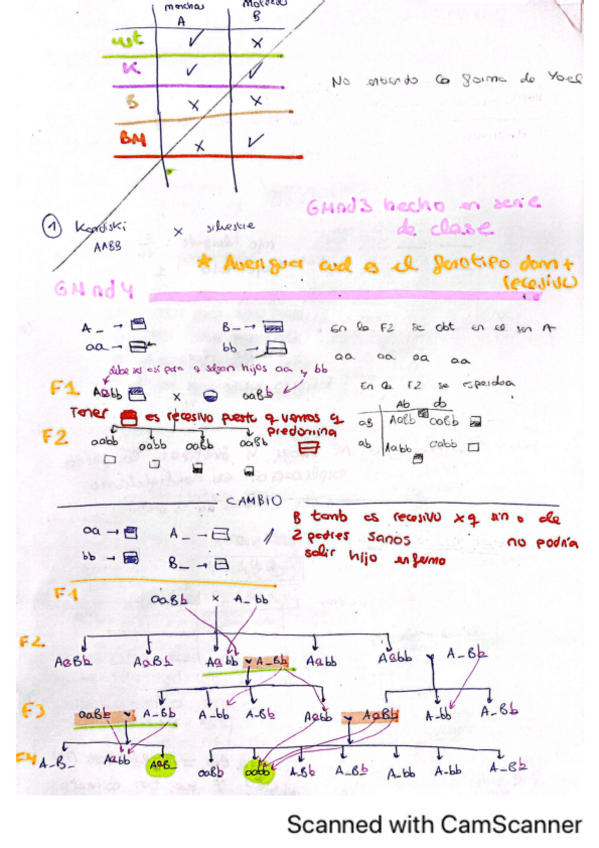 manchas
A B
wt ✓ x
K ✓ ✓
S x x
BM x ✓
No entiendo la forma de Yael
GMnd3 hecho en serie
de clase
① Kandiski x silvestre
AABB
* Averiguar cual es el genotipo dom +
recesivo
GMnd4
A_ → B_ → En la F2 se obt en el son A
aa → bb → aa aa aa aa
debe ser así para q salgan hijos aa y bb
F1 Aabb x aaBb En la F2 se esperaba
Ab ab
Tener es recesivo puesto q vemos q
predomina
aB AaBb aaBb
F2 aabb aabb aaBb aaBb
ab Aabb aabb
CAMBIO
aa → A_ →
bb → B_ →
B tamb es recesivo xq sin o de
2 padres sanos no podría
salir hijo enfermo
F1 aaBb x A_bb
F2 AaBb AaBb Aabb A_Bb Aabb Aabb A_Bb
F3 aaBb A_Bb A_bb A_Bb Aabb AaBb A_bb A_Bb
F4 A_B_ Aabb AaB_ aaBb aabb A_Bb A_Bb A_bb A_bb A_Bb
Scanned with CamScanner